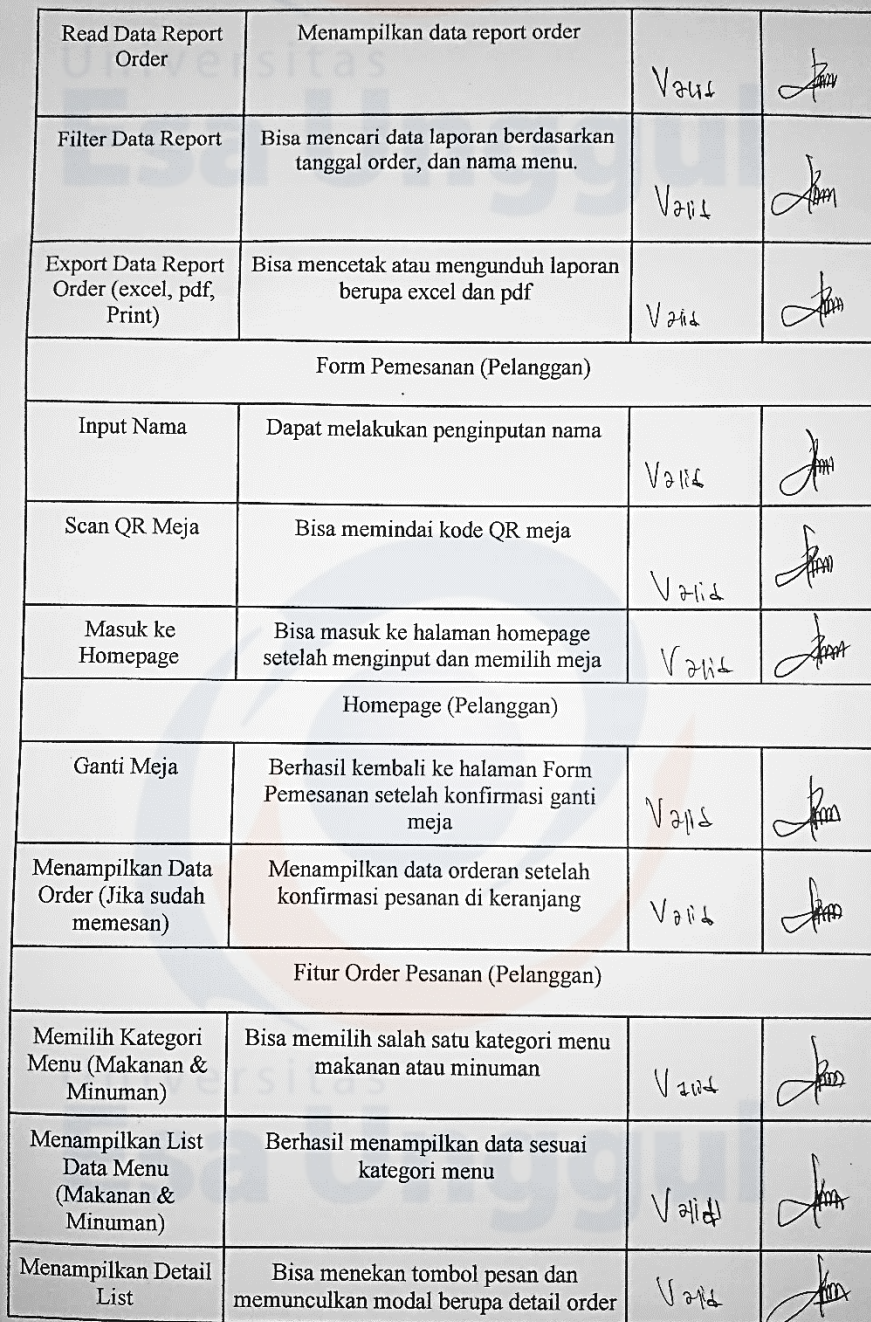 Read Data Report
Order
Menampilkan data report order
Valid
Filter Data Report
Bisa mencari data laporan berdasarkan
tanggal order, dan nama menu.
Valid
Export Data Report
Order (excel, pdf,
Print)
Bisa mencetak atau mengunduh laporan
berupa excel dan pdf
Valid
Form Pemesanan (Pelanggan)
Input Nama
Dapat melakukan penginputan nama
Valid
Scan QR Meja
Bisa memindai kode QR meja
Valid
Masuk ke
Homepage
Bisa masuk ke halaman homepage
setelah menginput dan memilih meja
Valid
Homepage (Pelanggan)
Ganti Meja
Berhasil kembali ke halaman Form
Pemesanan setelah konfirmasi ganti
meja
Valid
Menampilkan Data
Order (Jika sudah
memesan)
Menampilkan data orderan setelah
konfirmasi pesanan di keranjang
Valid
Fitur Order Pesanan (Pelanggan)
Memilih Kategori
Menu (Makanan &
Minuman)
Bisa memilih salah satu kategori menu
makanan atau minuman
Valid
Menampilkan List
Data Menu
(Makanan &
Minuman)
Berhasil menampilkan data sesuai
kategori menu
Valid
Menampilkan Detail
List
Bisa menekan tombol pesan dan
memunculkan modal berupa detail order
Valid
Universitas
Esa Unggul
Universitas
Esa Unggul